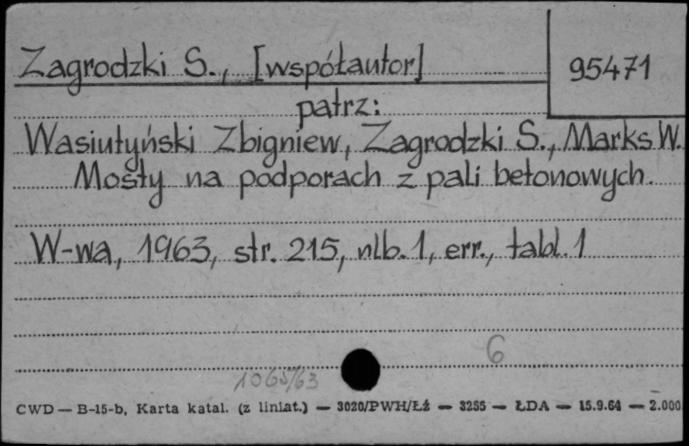 Zagrodzki S., [współautor]
95471
patrz:
Wasiutyński Zbigniew, Zagrodzki S., Marks W.
Mosty na podporach z pali betonowych.
W-wa, 1963, str. 215, nlb. 1, err., tabl. 1
6
1065/63
CWD — B-15-b, Karta katal. (z liniat.) — 3020/PWH/Łź — 3255 — ŁDA — 15.9.64 — 2.000